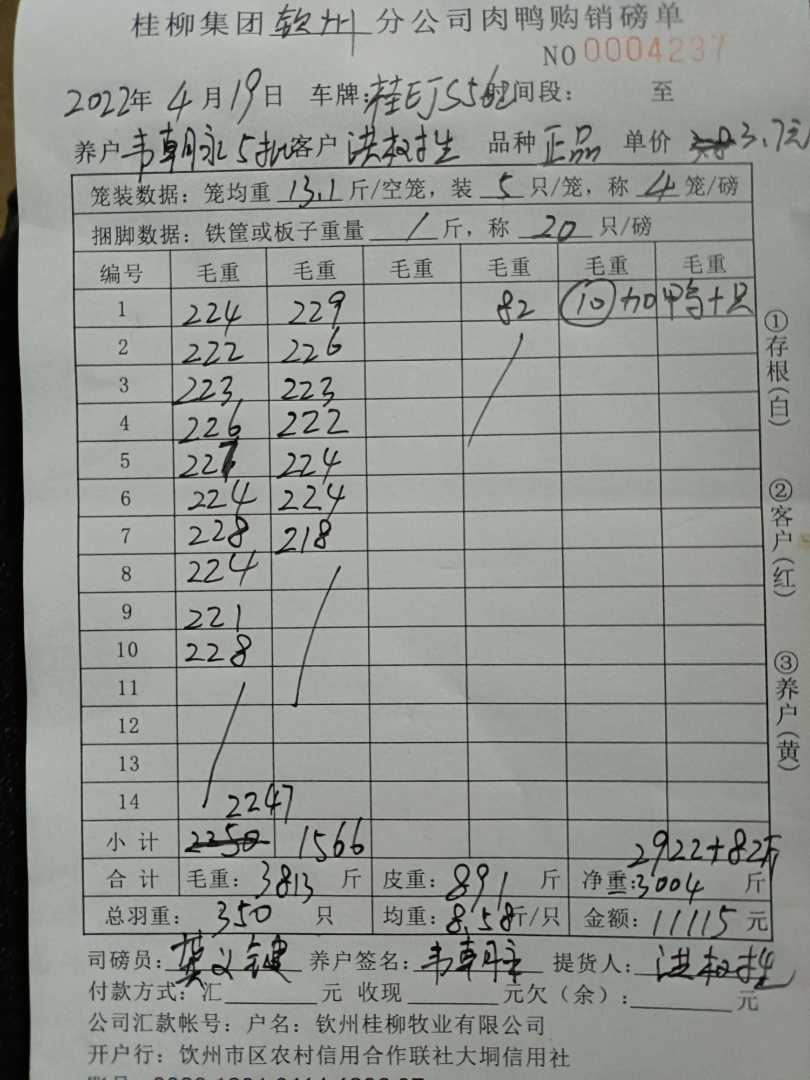 桂柳集团钦州分公司肉鸭购销磅单
NO 0004237
2022年4月19日 车牌:桂EJS5 时间段: 至
养户韦朝永5批客户洪权生 品种正品 单价 3.7元
笼装数据:笼均重 13.1 斤/空笼,装 5 只/笼,称 4 笼/磅
捆脚数据:铁筐或板子重量 1 斤,称 20 只/磅
编号 毛重 毛重 毛重 毛重 毛重 毛重
1 224 229 82 10 加鸭十只
2 222 226
3 223 223
4 226 222
5 227 224
6 224 224
7 228 218
8 224
9 221
10 228
11
12
13
14 2247
小计 2250 1566 2922+82斤
合计 毛重:3813 斤 皮重:891 斤 净重:3004 斤
总羽重:350 只 均重:8.58斤/只 金额:11115元
司磅员:莫义键 养户签名:韦朝永 提货人:洪权生
付款方式:汇 元 收现 元欠(余): 元
公司汇款帐号:户名:钦州桂柳牧业有限公司
开户行:饮州市区农村信用合作联社大垌信用社
①存根(白)
②客户(红)
③养户(黄)